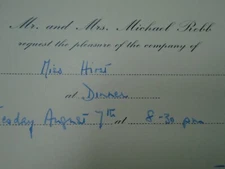 Mr. and Mrs. Michael Robb
request the pleasure of the company of
Miss Hirst
at Dinner
Tuesday August 7th at 8-30 pm